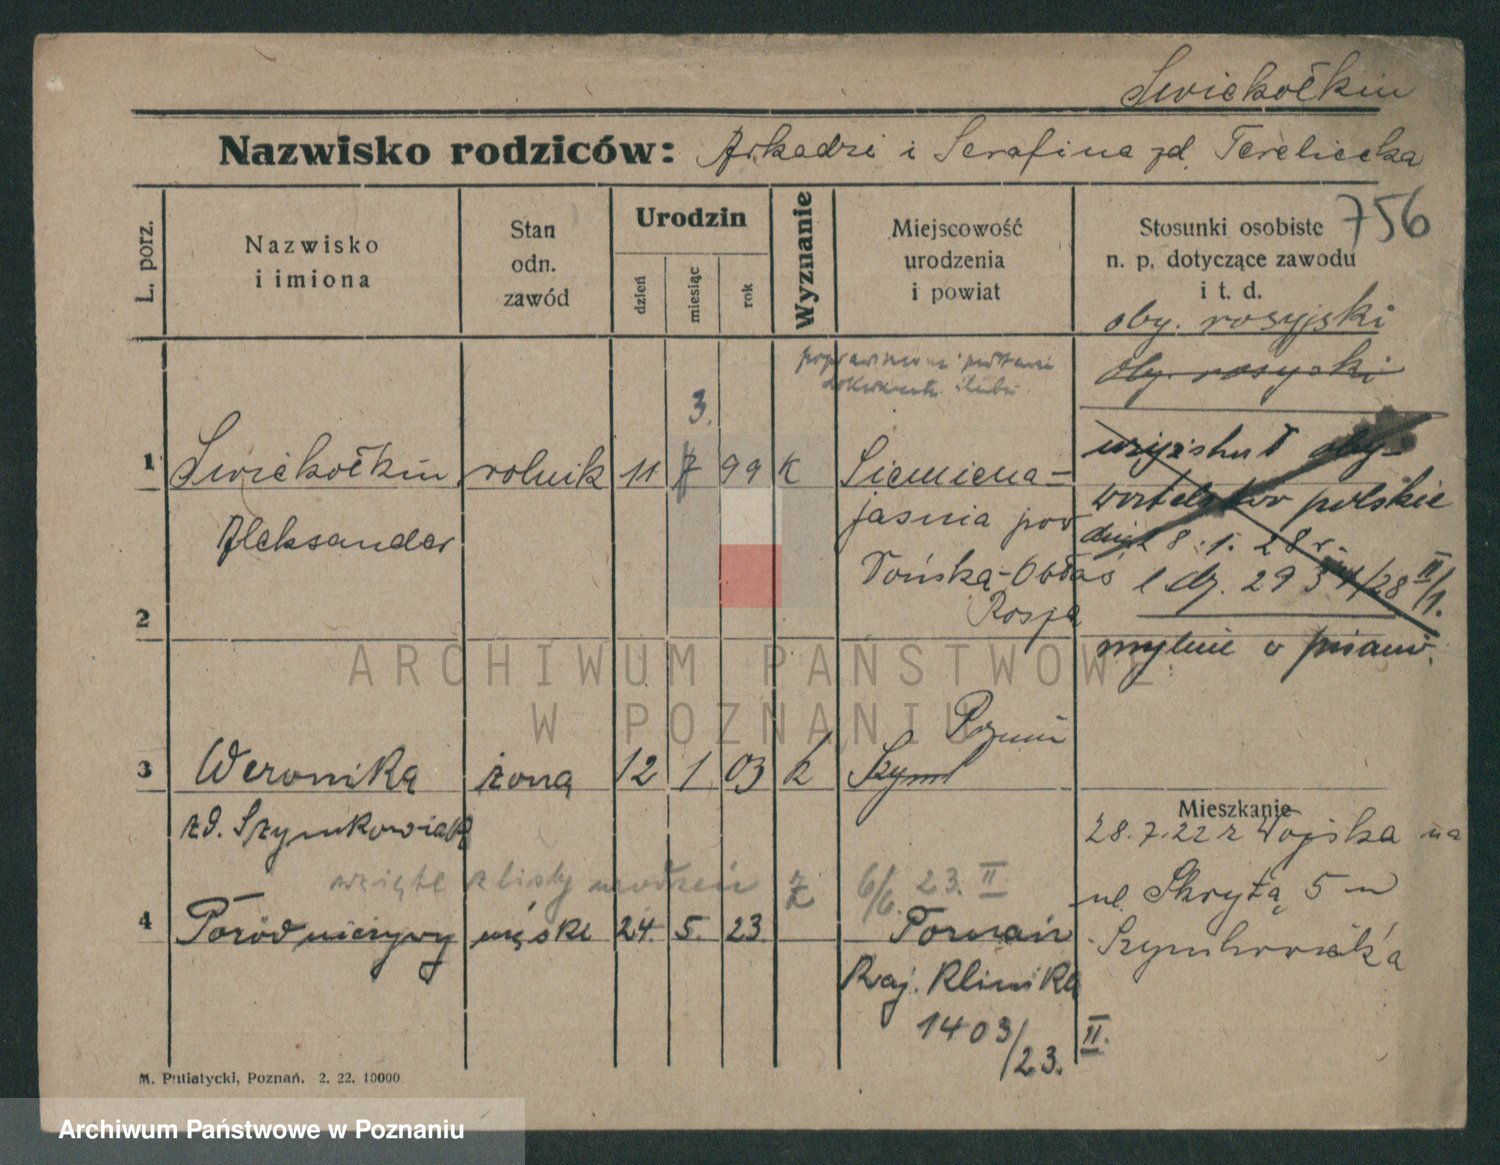 Swiekołkin
Nazwisko rodziców: Arkadzi i Serafina zd. Tereliecka
756
L. porz.
Nazwisko
i imiona
Stan
odn.
zawód
Urodzin
dzień
miesiąc
rok
Wyznanie
Miejscowość
urodzenia
i powiat
Stosunki osobiste
n. p. dotyczące zawodu
i t. d.
oby. rosyjski
oby. rosyjski
3.
1 Swiekołkin rolnik 11 99 K Siemiena-
Aleksander
jasnia pow
Dońska-Obłaś
Rosja
obywatelstwo polskie
dnia 8.1.28 r.
l. dz. 29 34/28 II/1.
mylnie
2
Poznań
3 Weronika żona 12 1 03 k Szym
zd. Szymkowiak
wzięte z listy urodzeń
6/6. 23. II
4 Poród nieżywy męski 24. 5. 23. Poznań
Kraj. Klinika
1403/23. II.
Mieszkanie
28.7.22 z Wojska na
ul. Skrytą 5 u
Szymkowiaka
M. Putiatycki, Poznań. 2. 22. 10000
ARCHIWUM PAŃSTWOWE
W POZNANIU
Archiwum Państwowe w Poznaniu